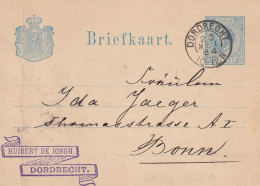 Briefkaart.
DORDRECHT
Fräulein
Ida Jaeger
Thomasstrasse A I
Bonn.
HUIBERT DE JONGH
DORDRECHT.